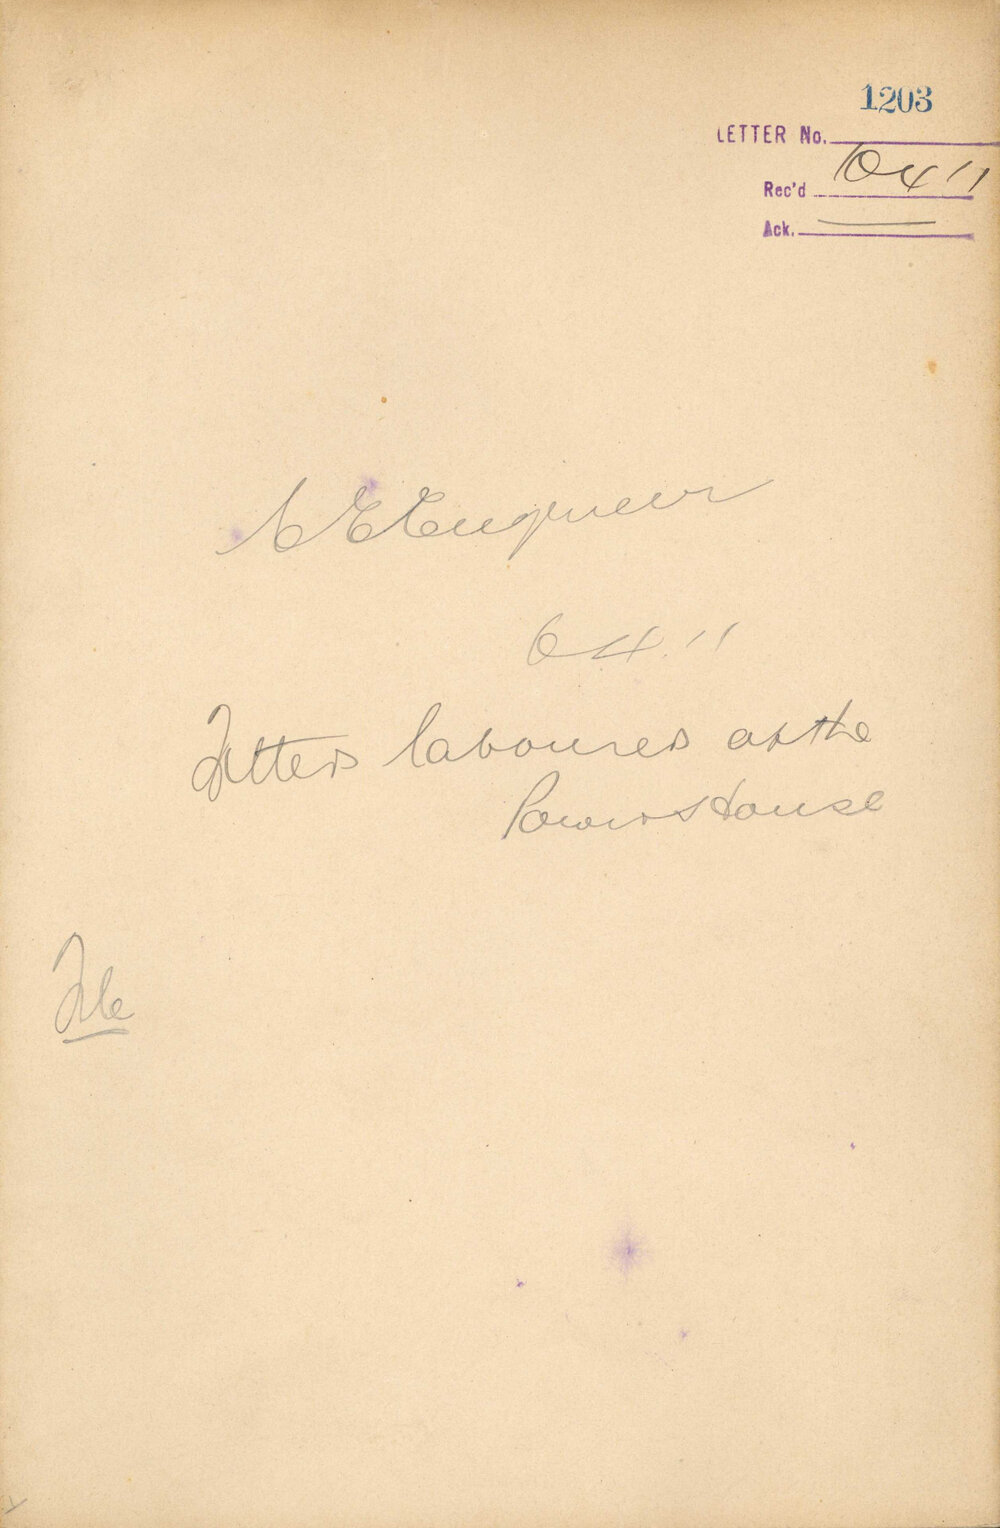 1203
LETTER No.
Rec'd 6 4 11
Ack.
C E Engineer
6 4 11
Fitters labourers at the
Power House
File